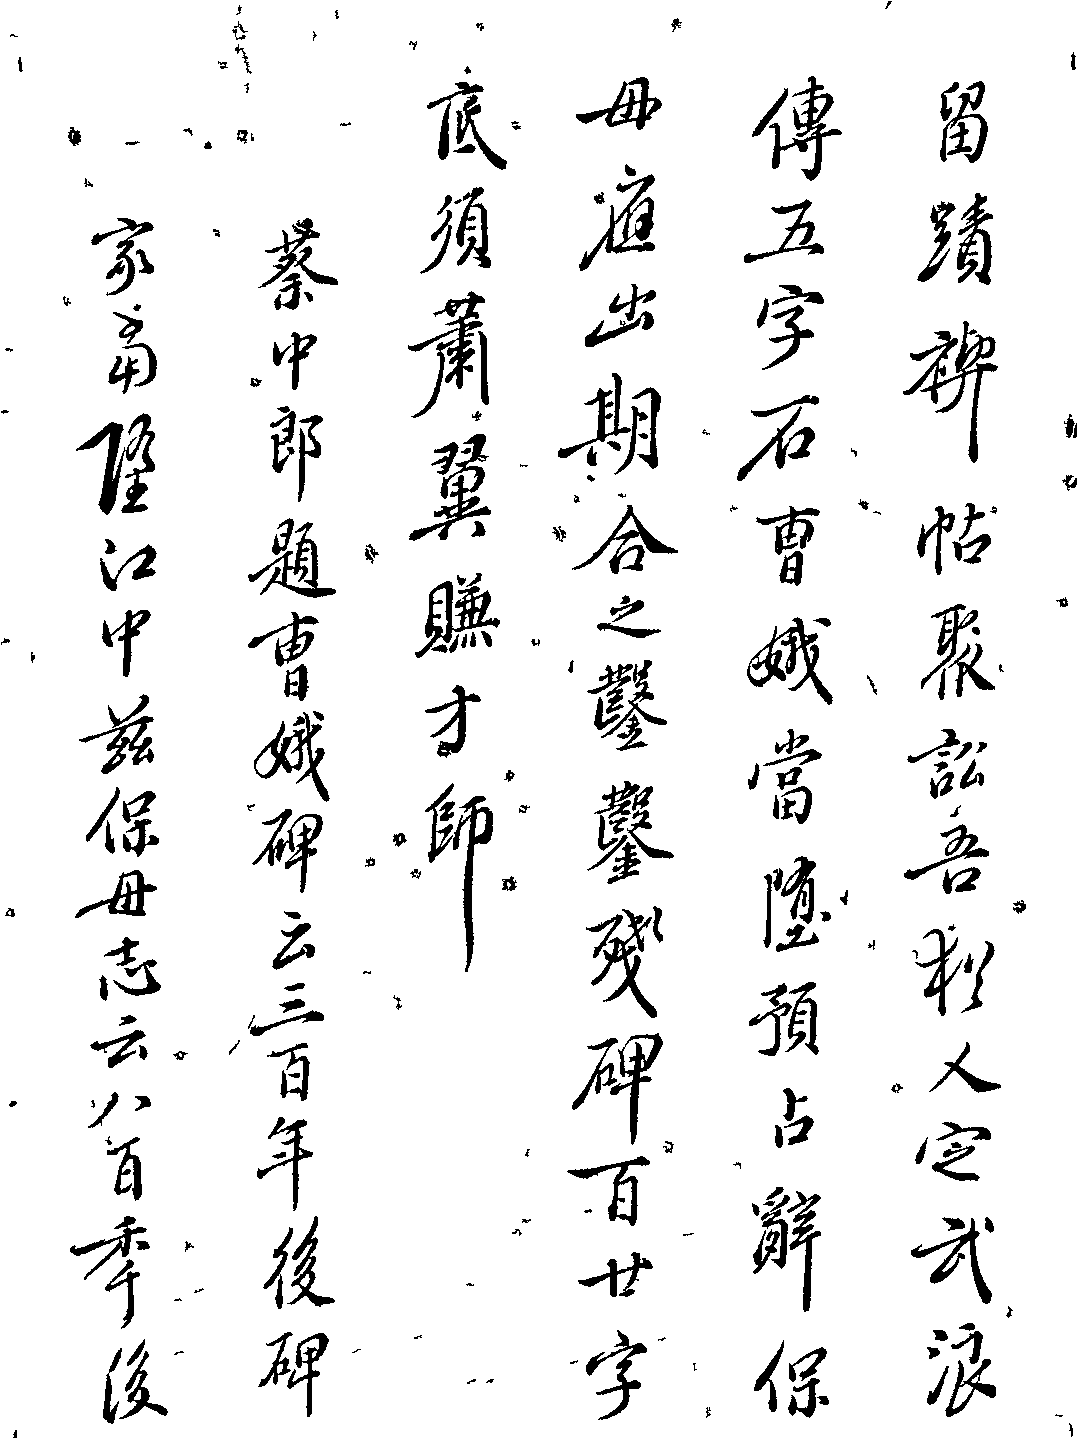 留蹟禊帖聚訟吾猶人定武浪
傳五字石曹娥當墮預占辭保
母應出期合之鑿鑿殘碑百廿字
底須蕭翼賺才師
蔡中郎題曹娥碑云三百年後碑
冢當墮江中茲保母志云八百季後